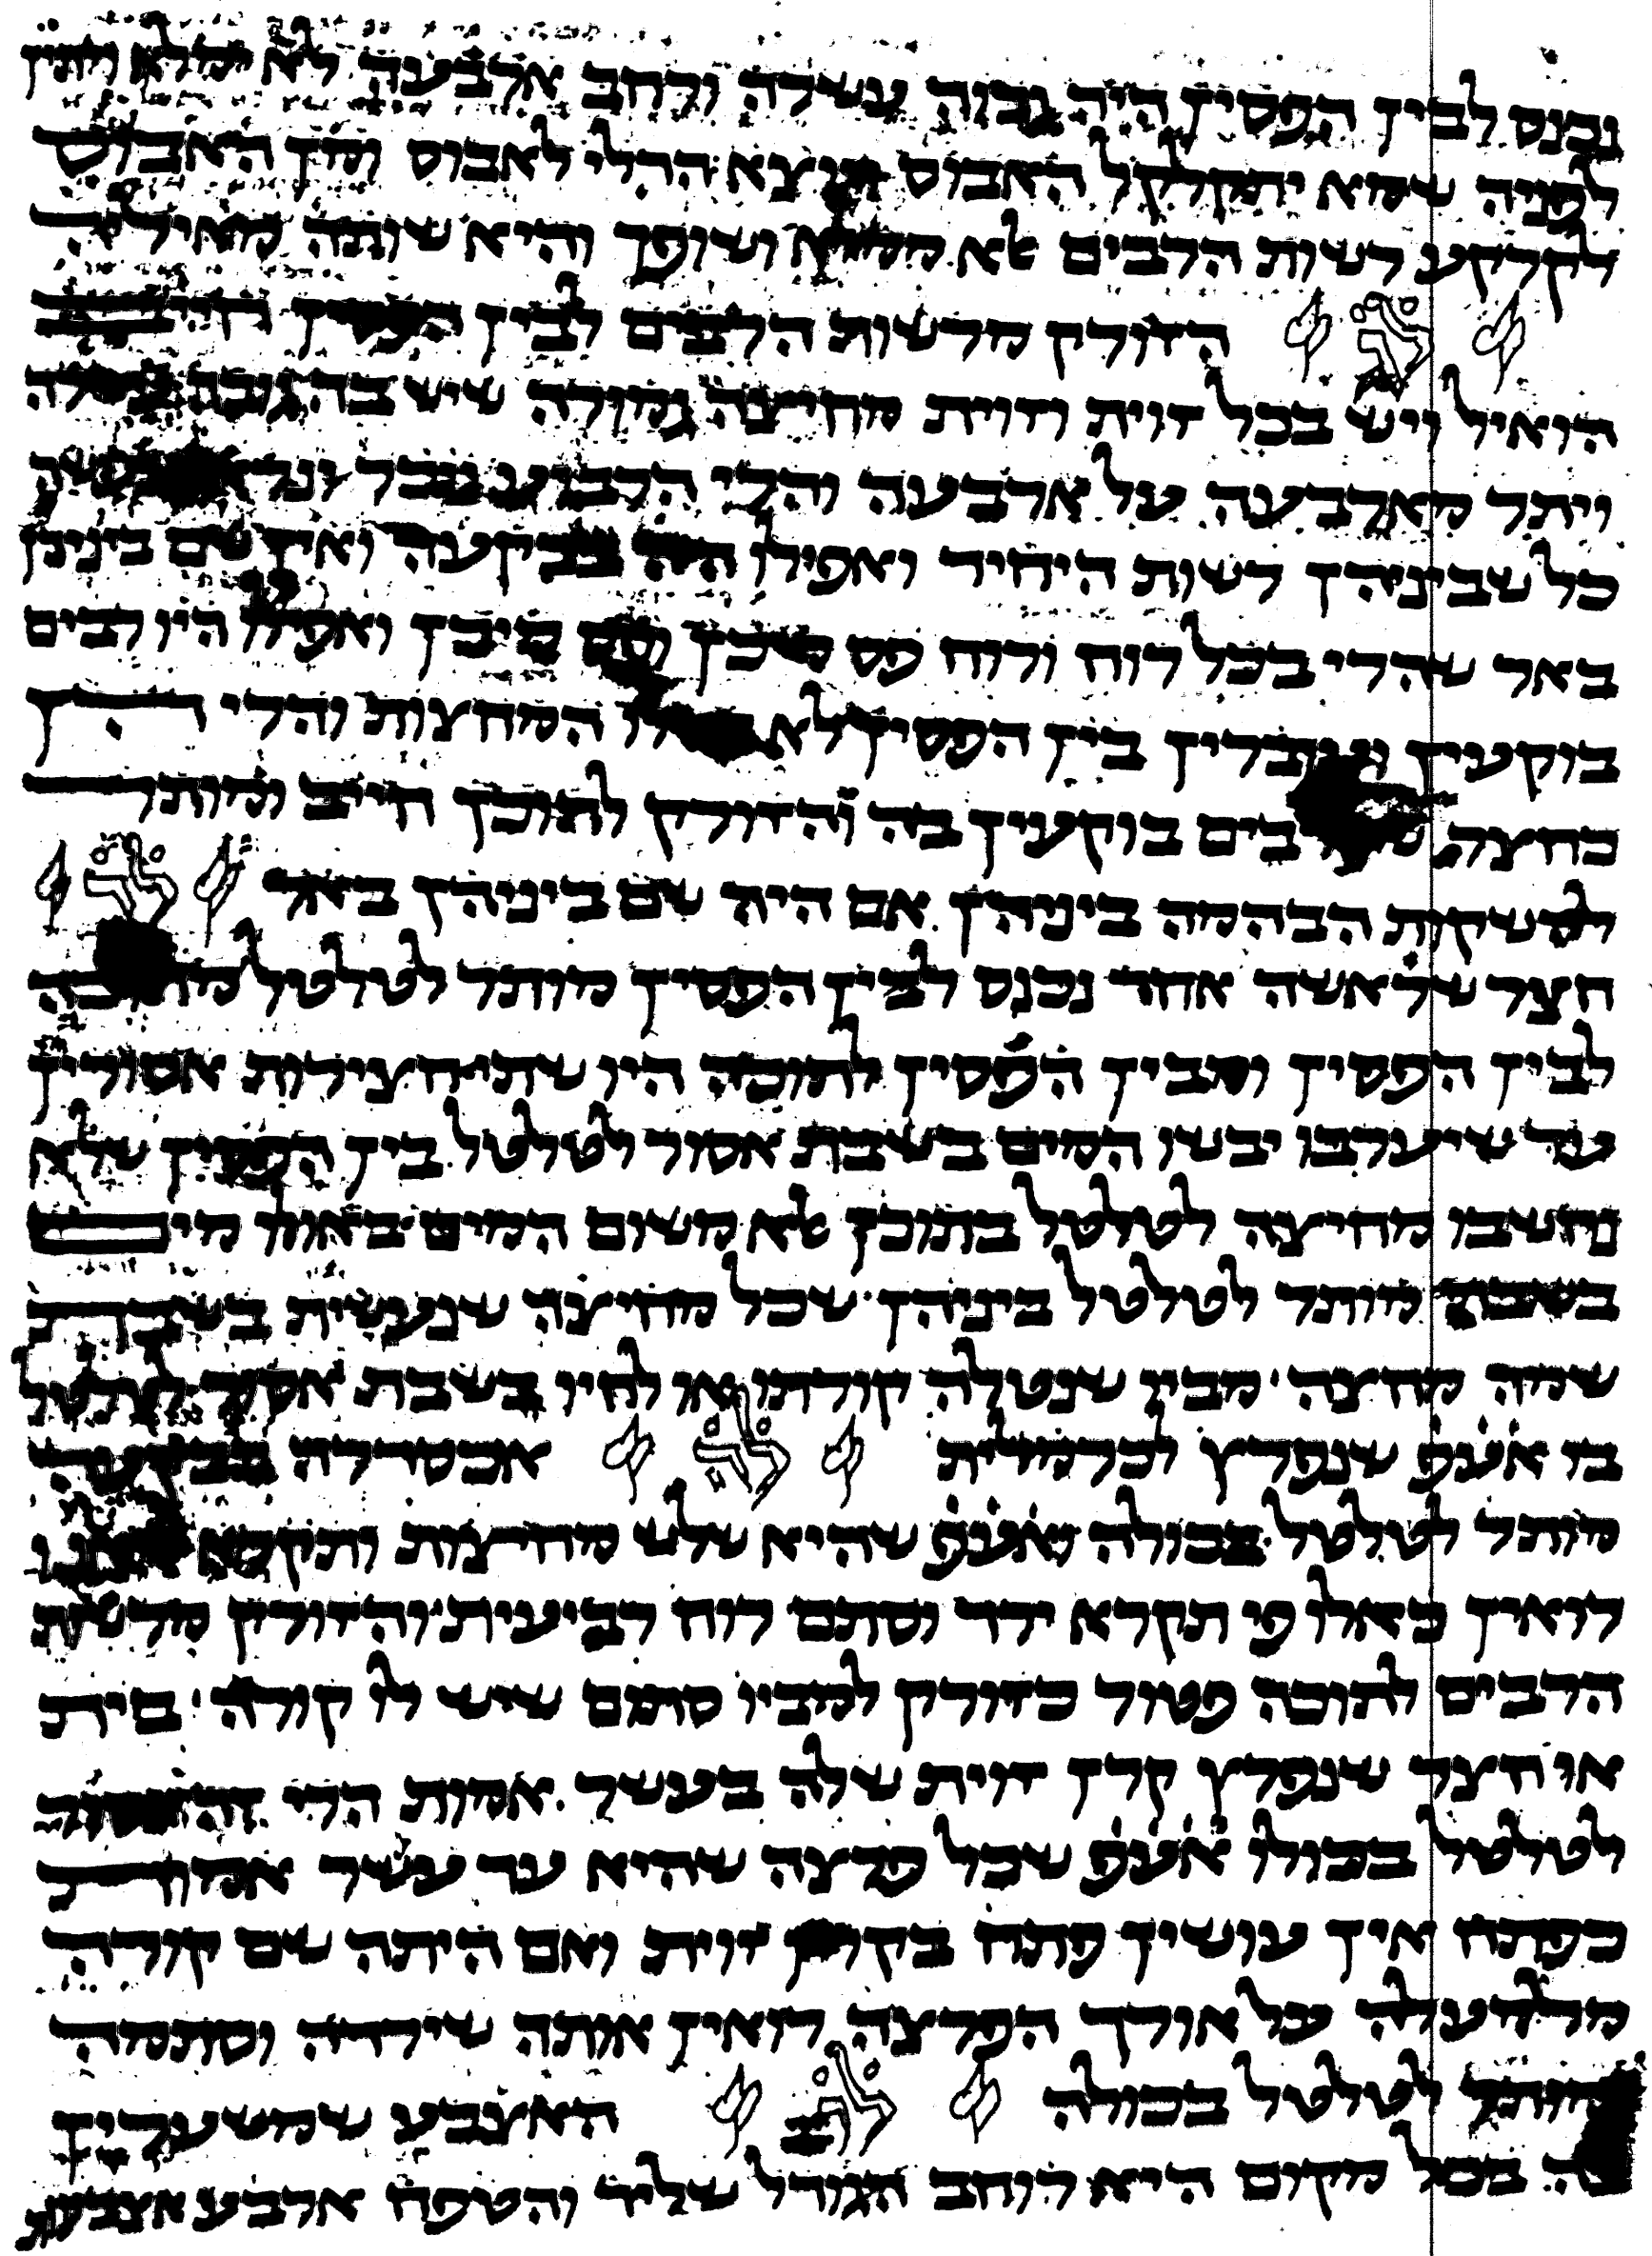 נכנס לבין הפסין היה גבוה עשרה ורחב ארבעה לא ימלא ויתן
לפניה שמא יתקלקל האבוס ויוציא הדלי לאבוס ומן האבוס
לקרקע רשות הרבים אלא ממלא ושופך והיא שותה מאיליה
הזורק מרשות הרבים לבין הפסין חייב
הואיל ויש בכל זוית וזוית מחיצה גמורה שיש בה גובה עשרה
ויתר מארבעה על ארבעה והרי הרבוע ניכר ונראה ונעשה
כל שביניהן רשות היחיד ואפילו היה בבקעה ואין שם ביניהן
באר שהרי בכל רוח ורוח פס מיכן ופס מיכן ואפילו היו רבים
בוקעין ועוברין בין הפסין לא בטלו המחצות והרי הן
כחצר שהרבים בוקעין בה והזורק לתוכן חייב ומותר
להשקות הבהמה ביניהן אם היה שם ביניהן באר
חצר שראשה אחד נכנס לבין הפסין מותר לטלטל מתוכה
לבין הפסין ומבין הפסין לתוכה היו שתי חצירות אסורין
עד שיערבו יבשו המים בשבת אסור לטלטל בין הפסין שלא
נחשבו מחיצה לטלטל בתוכן אלא משום המים באו לו מים
בשבת מותר לטלטל ביניהן שכל מחיצה שנעשית בשבת
שמה מחצה מבוי שנטלה קורתו או לחיו בשבת אסור לטלטל
בו אע״פ שנפרץ לכרמלית אכסדרה בבקעה
מותר לטלטל בכולה ואע״פ שהיא שלש מחיצות ותקרה שאנו
רואין כאלו פי תקרא ירד וסתם רוח רביעית והזורק מרשות
הרבים לתוכה פטור כזורק למבוי סתום שיש לו קורה בית
או חצר שנפרץ קרן זוית שלה בעשר אמות הרי זה אסור
לטלטל בכולו אע״פ שכל פרצה שהיא עד עשר אמות
כפתח אין עושין פתח בקרן זוית ואם היתה שם קורה
מלמעלה על אורך הפרצה רואין אותה שירדה וסתמה
ומותר לטלטל בכולה האצבע שמשערין
בה בכל מקום היא רוחב הגודל שליד והטפח ארבע אצבעות